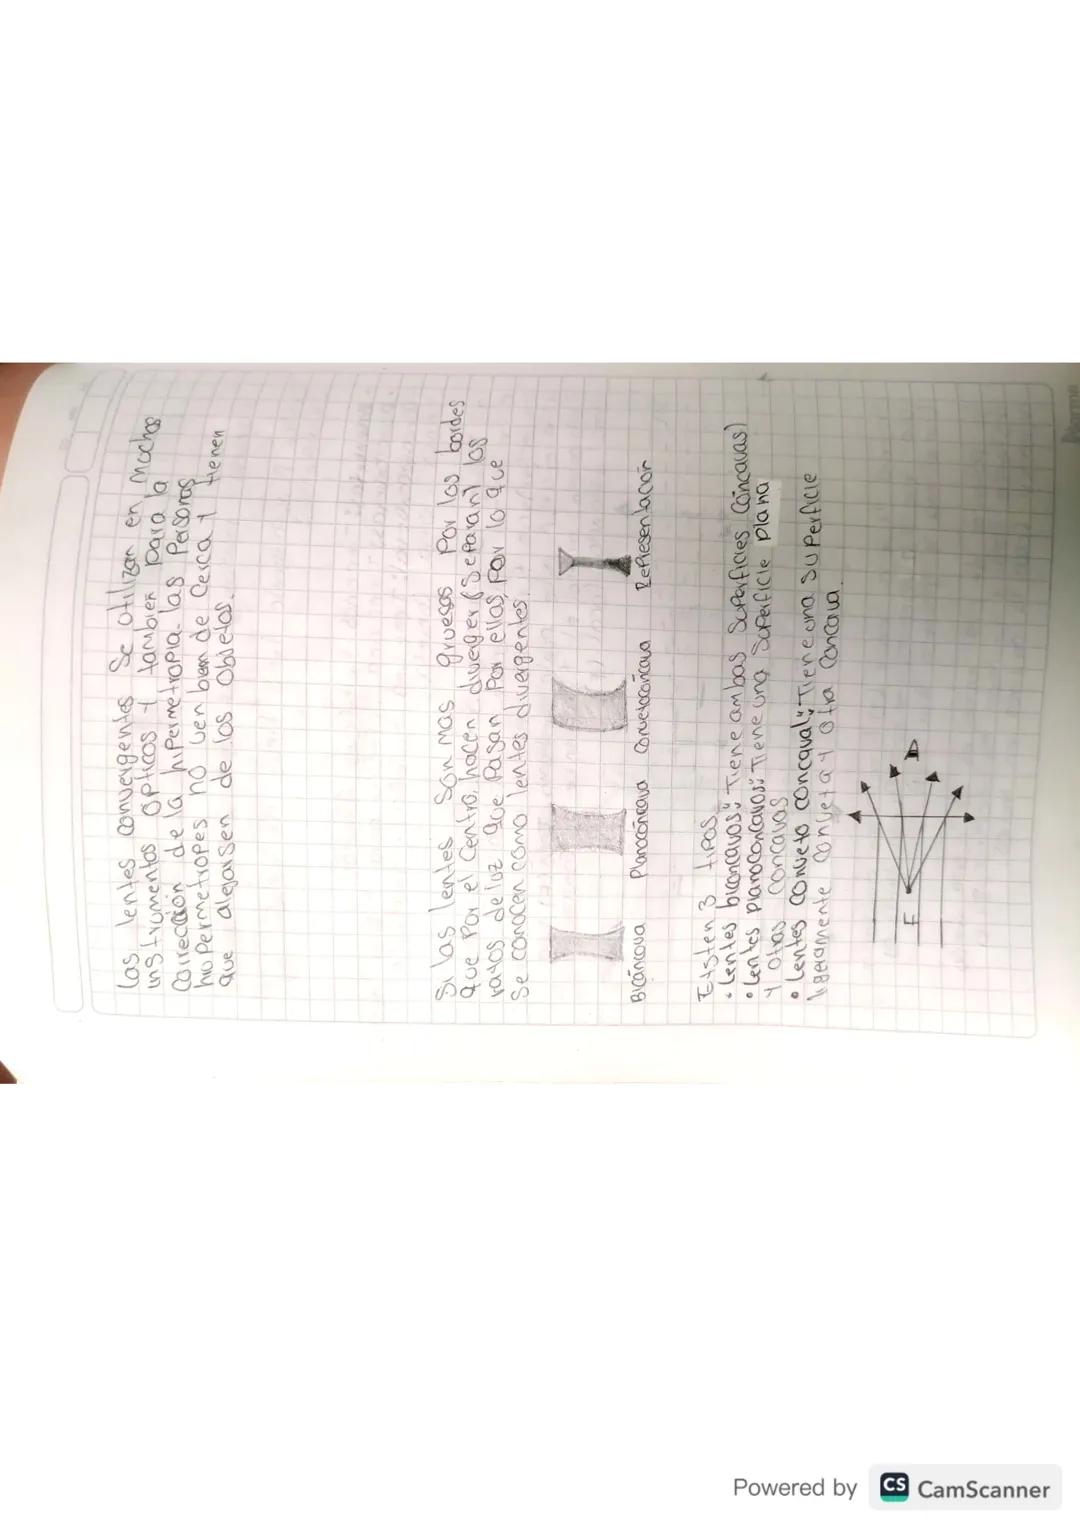 Las lentes convergentes Se utilizan en muchos
instrumentos opticos y tambien para la
Corrección de la hipermetropia. las Personas
hipermetropes no ven bien de cerca y tienen
que alejarsen de los objetos.
Si las lentes Son mas gruesas Por los bordes
que Por el centro, hacen diverger (Separan) los
rayos de luz que Pasan Por ellas, por lo que
Se conocen como lentes divergentes.
Bicóncava Planocóncava Convexocóncava Representación
Existen 3 tipos
• Lentes biconcavos: Tiene ambas Superficies Cóncavas)
• Lentes planoconcavos: Tiene una Superficie plana
y otras concavas
• Lentes conveto concava: Tiene una superficie
ligeramente conveta y otra concava.
F
Powered by CS CamScanner